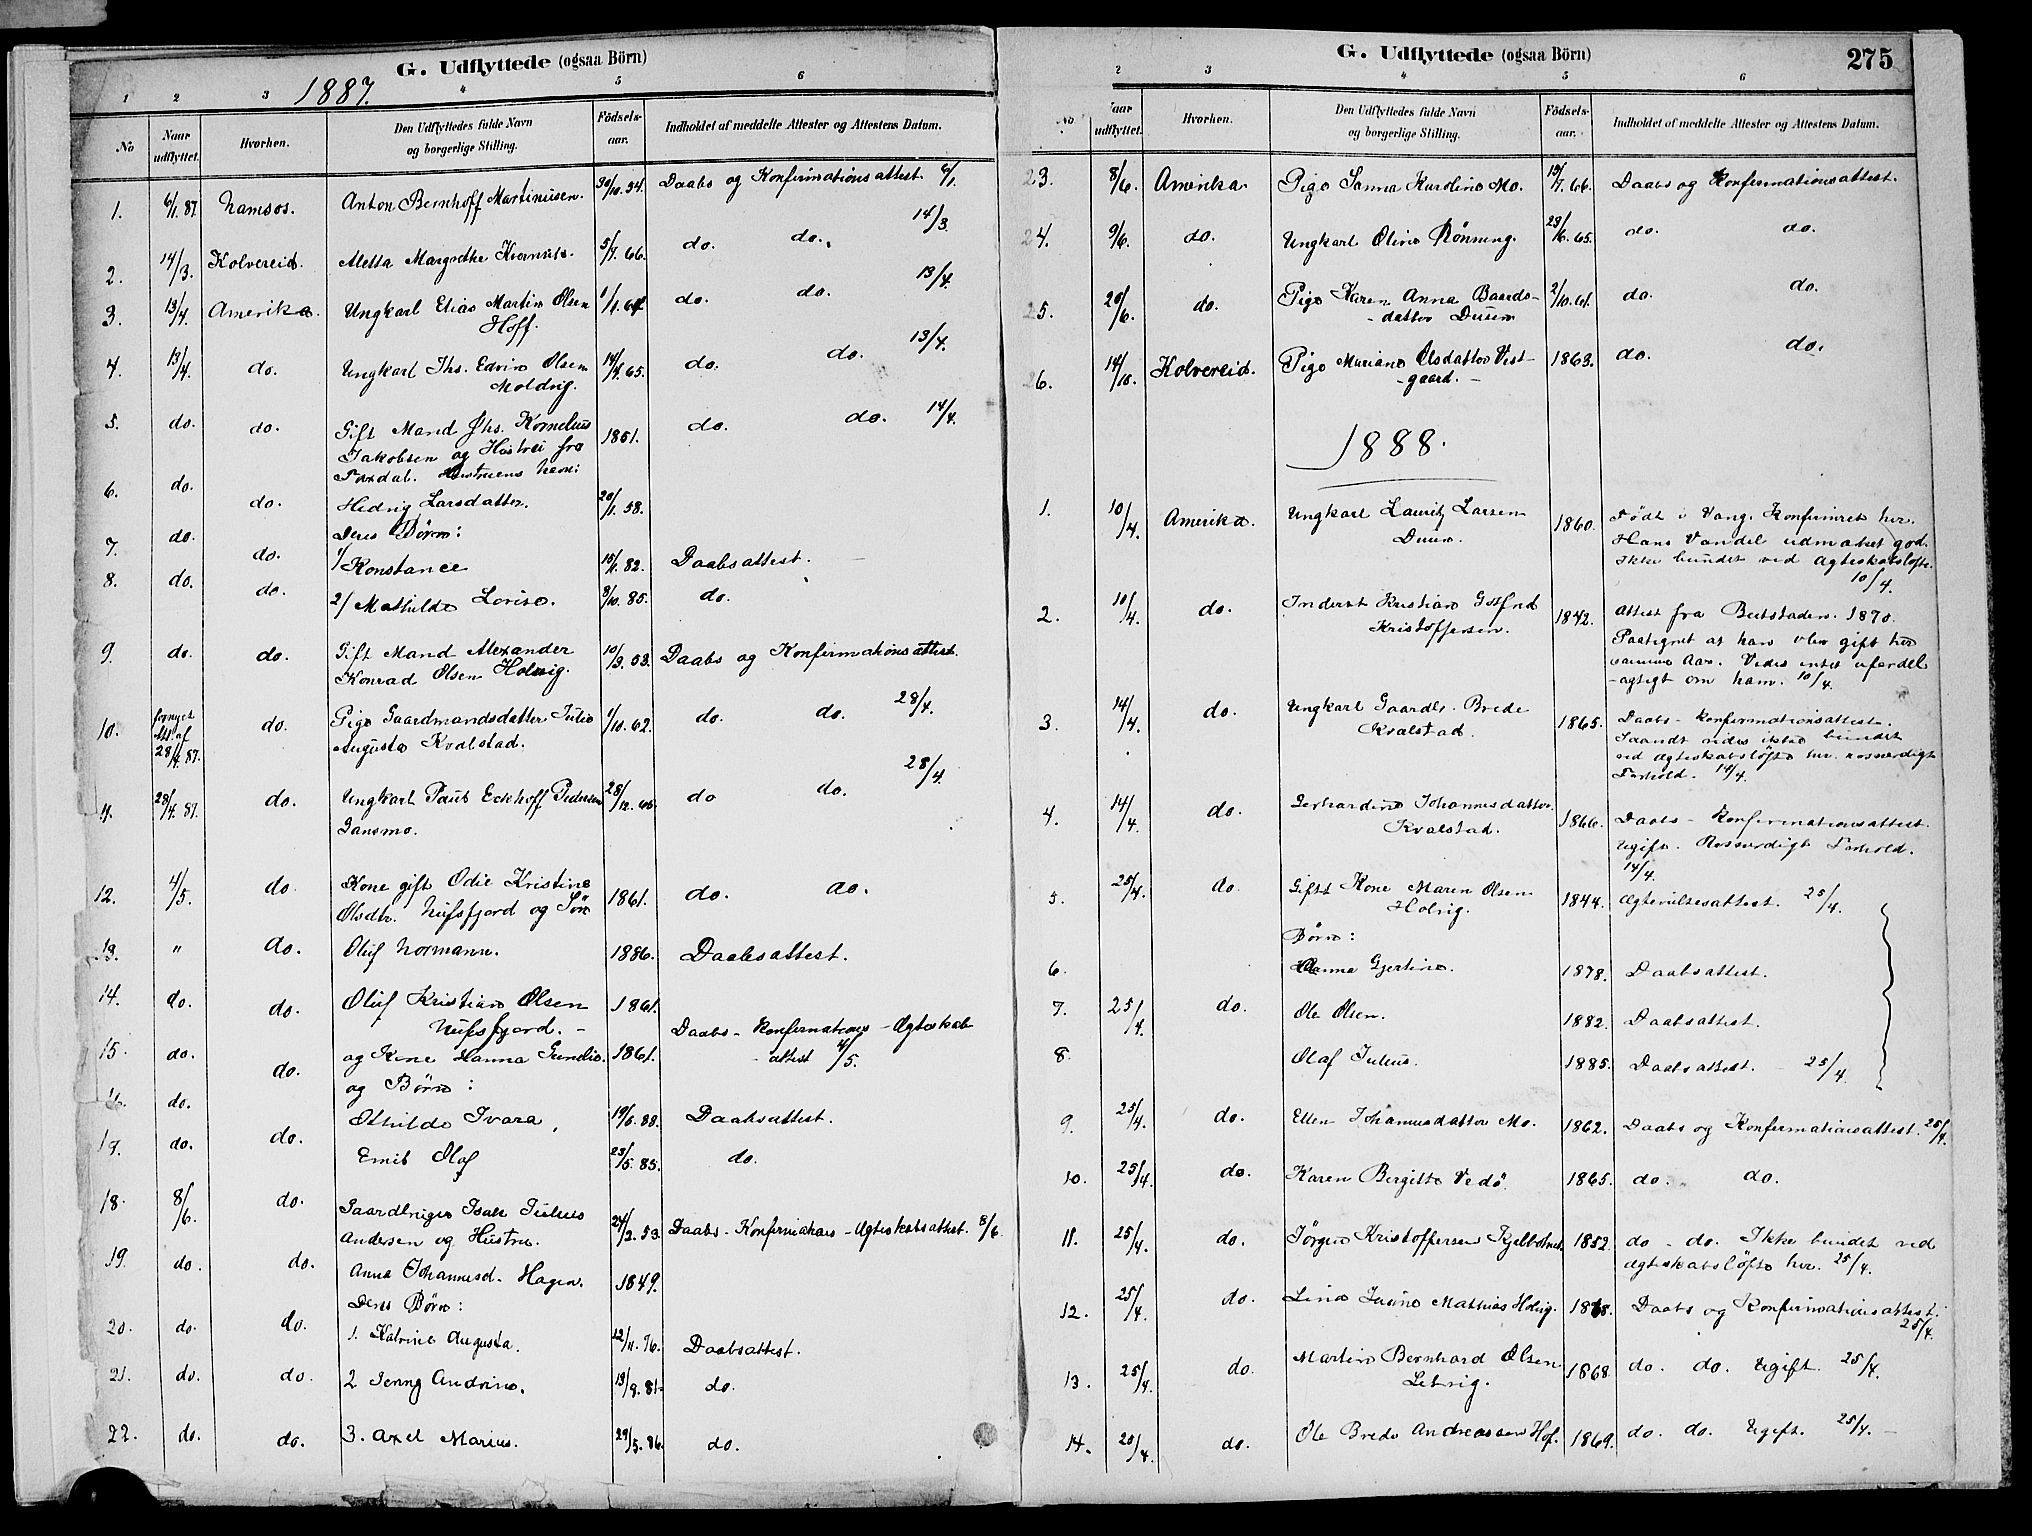 G. Udflyttede (ogsaa Börn)
1887.
1 2 3 4 5 6
No Naar udflyttet. Hvorhen. Den Udflyttedes fulde Navn og borgerlige Stilling. Födsels-aar. Indholdet af meddelte Attester og Attestens Datum.
1. 6/1 87. Namsos. Anton Bernhoff Martinusen. 30/10. 54. Daabs og Konfirmationsattest. 6/1.
2. 14/3. Kolvereid. Aletta Margrethe 5/7. 66. do. do. 14/3.
3. 13/4. Amerika. Ungkarl Elias Martin Olsen 1/1. 64. do. do. 13/4.
Hoff.
4. 13/4. do. Ungkarl Jhs. Edvin Olsen 14/4. 65. do. do. 13/4.
Moldvig.
5. do. do. Gift Mand Jhs. Kornelius 1851. do. do. 14/4.
Jakobsen og Hustru fra
Faxdal. Hustruens Navn:
6. do. do. Hedvig Larsdatter. 20/1. 58.
Deres Børn:
7. do. do. 1/ Konstance 82. Daabsattest.
8. do. do. 2/ Mathilde Lovise. 8/10. 85. do.
9. do. do. Gift Mand Alexander 10/3. 53. Daabs og Konfirmationsattest
Konrad Olsen Holvig.
10. fornyet Att. af 28/4. 87. do. Pige Gaardmandsdatter Julie 1/10. 62. do. do. 28/4.
Augusta Kvalstad.
11. 28/4. 87. do. Ungkarl Paul Eckhoff Pedersen 28/12. 66. do do. 28/4.
Gansmo.
12. 4/5. do. Kone gift Odie Kristine 1861. do. do.
Olsdtr. Nufsfjord og Søn
13. " do. Oluf Normann. 1886. Daabsattest.
14. do. do. Oluf Kristian Olsen 1861. Daabs- Konfirmations- Ægteskab
Nufsfjord. - -attest 4/5.
15. do. do. og Kone Hanna 1861.
og Børn:
16. do. Othilde Ivara, 88. Daabsattest.
17. do. do. Emil Olaf 23/5. 85. do.
18. 8/6. do. Gaardbruger Isak Julius 24/2. 53. Daabs- Konfirmations- Ægteskabsattest. 8/6
Andersen og Hustru.
19. do. do. Anna Johannesd. Hagen. 1849.
Deres Børn:
20. do. do. 1. Katrine Augusta. 12/11. 76. Daabsattest.
21. do. do. 2 Jenny Andrine. 13/9. 81. do.
22. do. do. 3. Axel Marius. 29/5. 86. do.
G. Udflyttede (ogsaa Börn) 275
2 3 4 5 6
No Naar udflyttet. Hvorhen. Den Udflyttedes fulde Navn og borgerlige Stilling. Födsels-aar. Indholdet af meddelte Attester og Attestens Datum.
23. 8/6. Amerika. Pige Sanna Karoline Mo. 19/7. 66. Daabs og Konfirmationsattest.
24. 9/6. do. Ungkarl Oline Rönning. 23/6. 65. do. do.
25. 20/6. do. Pige Karen Anna Baards- 2/10. 61. do. do.
-datter Duun
26. 14/10. Kolvereid. Pige Mariane Olsdatter Vest- 1863. do. do.
-gaard. -
1888.
1. 10/4. Amerika. Ungkarl Lauritz Larsen 1860. Født i Vang. Konfirmeret her.
Duun. Hans Vandel udmærket god.
Ikke bundet ved Ægteskabsløfte.
10/4.
2. 10/4. do. Inderst Kristian Gotfred 1842. Attest fra Beitstaden. 1870.
Kristoffersen. Paategnet at han blev gift her
samme Aar. Vides intet ufordel-
-agtigt om ham. 10/4.
3. 14/4. do. Ungkarl Gaardbr. Brede 1865. Daabs- Konfirmationsattest.
Kvalstad. Saavidt vides ikke bundet
ved Ægteskabsløfte her. rosværdigt
Forhold. 14/4.
4. 14/4. do. Gerhardine Johannesdatter 1866. Daabs- Konfirmationsattest.
Kvalstad. Ugift. Rosværdigt Forhold.
14/4.
5. 25/4. do. Gift Kone Maren Olsen 1844. Ægtevielsesattest. 25/4.
Holvig.
Børn:
6. Hanna Gjertine. 1878. Daabsattest.
7. 25/4. do. Ole Olsen. 1882. Daabsattest.
8. Olaf Julius. 1885. Daabsattest. 25/4.
9. 25/4. do. Ellen Johannesdatter Mo. 1862. Daabs og Konfirmationsattest. 25/4.
10. 25/4. do. Karen Birgitte Vedö. 1865. do. do.
11. 25/4. do. Jörgen Kristoffersen Kjelbotnet. 1852. do - do. Ikke bundet ved
Ægteskabsløfte her. 25/4.
12. 25/4. do. Mathias Holvig. Daabs og Konfirmationsattest.
25/4.
13. 25/4. do. Martin Bernhard Olsen 1868. do. do. Ugift. 25/4.
Letvig.
14. 25/4. do. Ole Brede Andreassen Hof. 1869. do. do. Ugift. 25/4. -